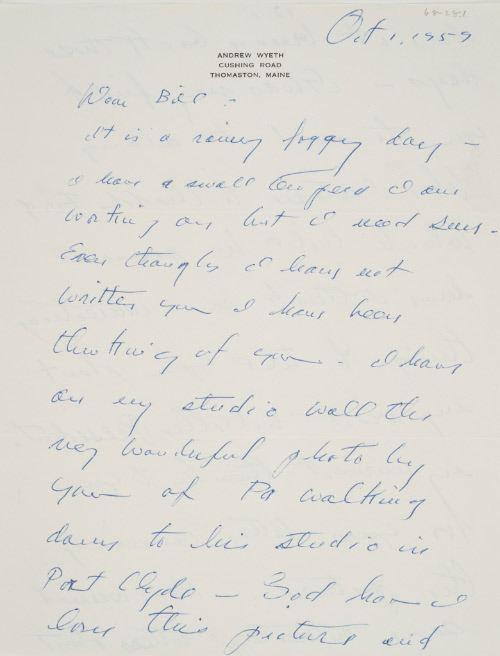 68-281
Oct 1, 1959
ANDREW WYETH
CUSHING ROAD
THOMASTON, MAINE
Dear Bill:
It is a rainy foggy day —
I have a small tempera I am
working on but I need sun -
Even though I have not
written you I have been
thinking of you - I have
on my studio wall the
very wonderful photo by
you of Pa walking
down to his studio in
Port Clyde — God how I
love this picture and